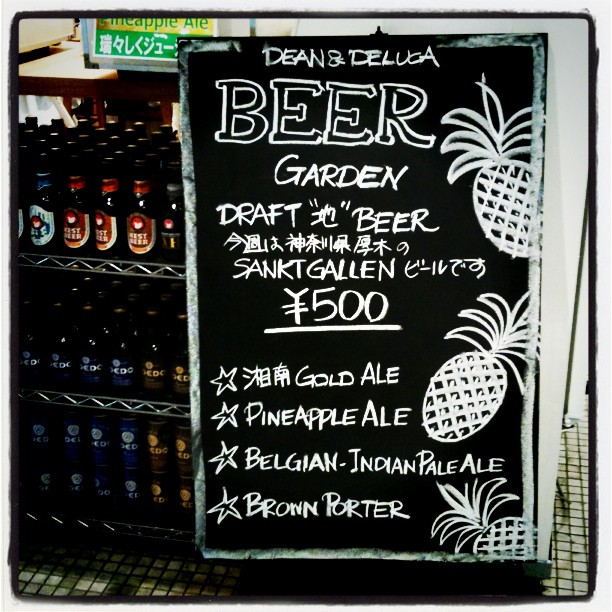 Pineapple Ale
瑞々しくジュー
DEAN & DELUCA
BEER
GARDEN
DRAFT "地" BEER
今週は神奈川県厚木の
SANKT GALLEN ビールです
¥500
☆ 湘南 GOLD ALE
☆ PINEAPPLE ALE
☆ BELGIAN-INDIAN PALE ALE
☆ BROWN PORTER
NEST
BEER
NEST
BEER